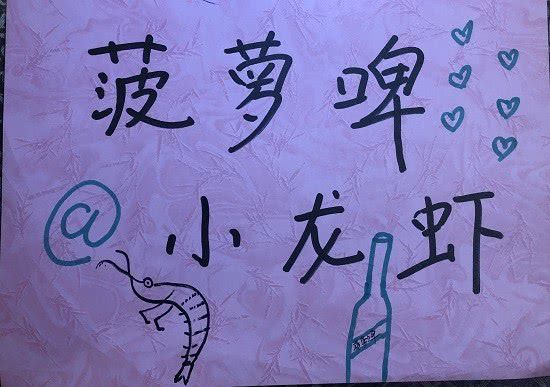 菠萝啤
@小龙虾